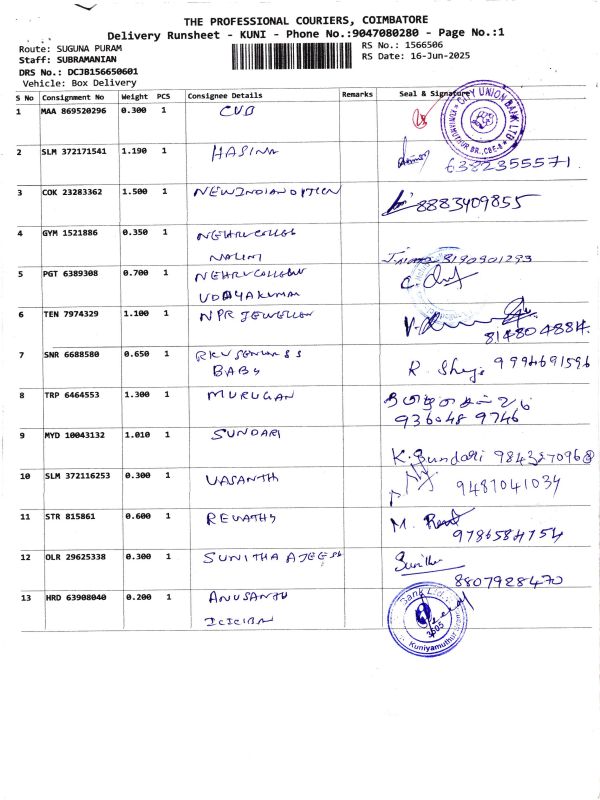 THE PROFESSIONAL COURIERS, COIMBATORE
Delivery Runsheet - KUNI - Phone No.:9047080280 - Page No.:1
Route: SUGUNA PURAM RS No.: 1566506
Staff: SUBRAMANIAN RS Date: 16-Jun-2025
DRS No.: DCJB156650601
Vehicle: Box Delivery
S No Consignment No Weight PCS Consignee Details Remarks Seal & Signature
1 MAA 869520296 0.300 1 CUB CITY UNION BANK LTD
2 SLM 372171541 1.190 1 HASINA 6382355571
3 COK 23283362 1.500 1 NEWINDIANOPTICN 8883409855
4 GYM 1521886 0.350 1 NEHRU COLLEG
NALINI 8190901293
5 PGT 6389308 0.700 1 NEHRU COLLEGE
UDAYAKUMAR
6 TEN 7974329 1.100 1 NPR JEWELLER
814804884.
7 SNR 6688580 0.650 1 9994691596
BABY R. Shaji
8 TRP 6464553 1.300 1 MURUGAN
936048 9746
9 MYD 10043132 1.010 1 SUNDARI
K. Sundari
10 SLM 372116253 0.300 1 VASANTH 9487041034
11 STR 815861 0.600 1 REVATHY M.
9786584754
12 OLR 29625338 0.300 1 SUNITHA AJEESH Sunitha
8807928470
13 HRD 63908040 0.200 1 ANUSANTH Bank Ltd
ICICIBA Kuniyamuthur